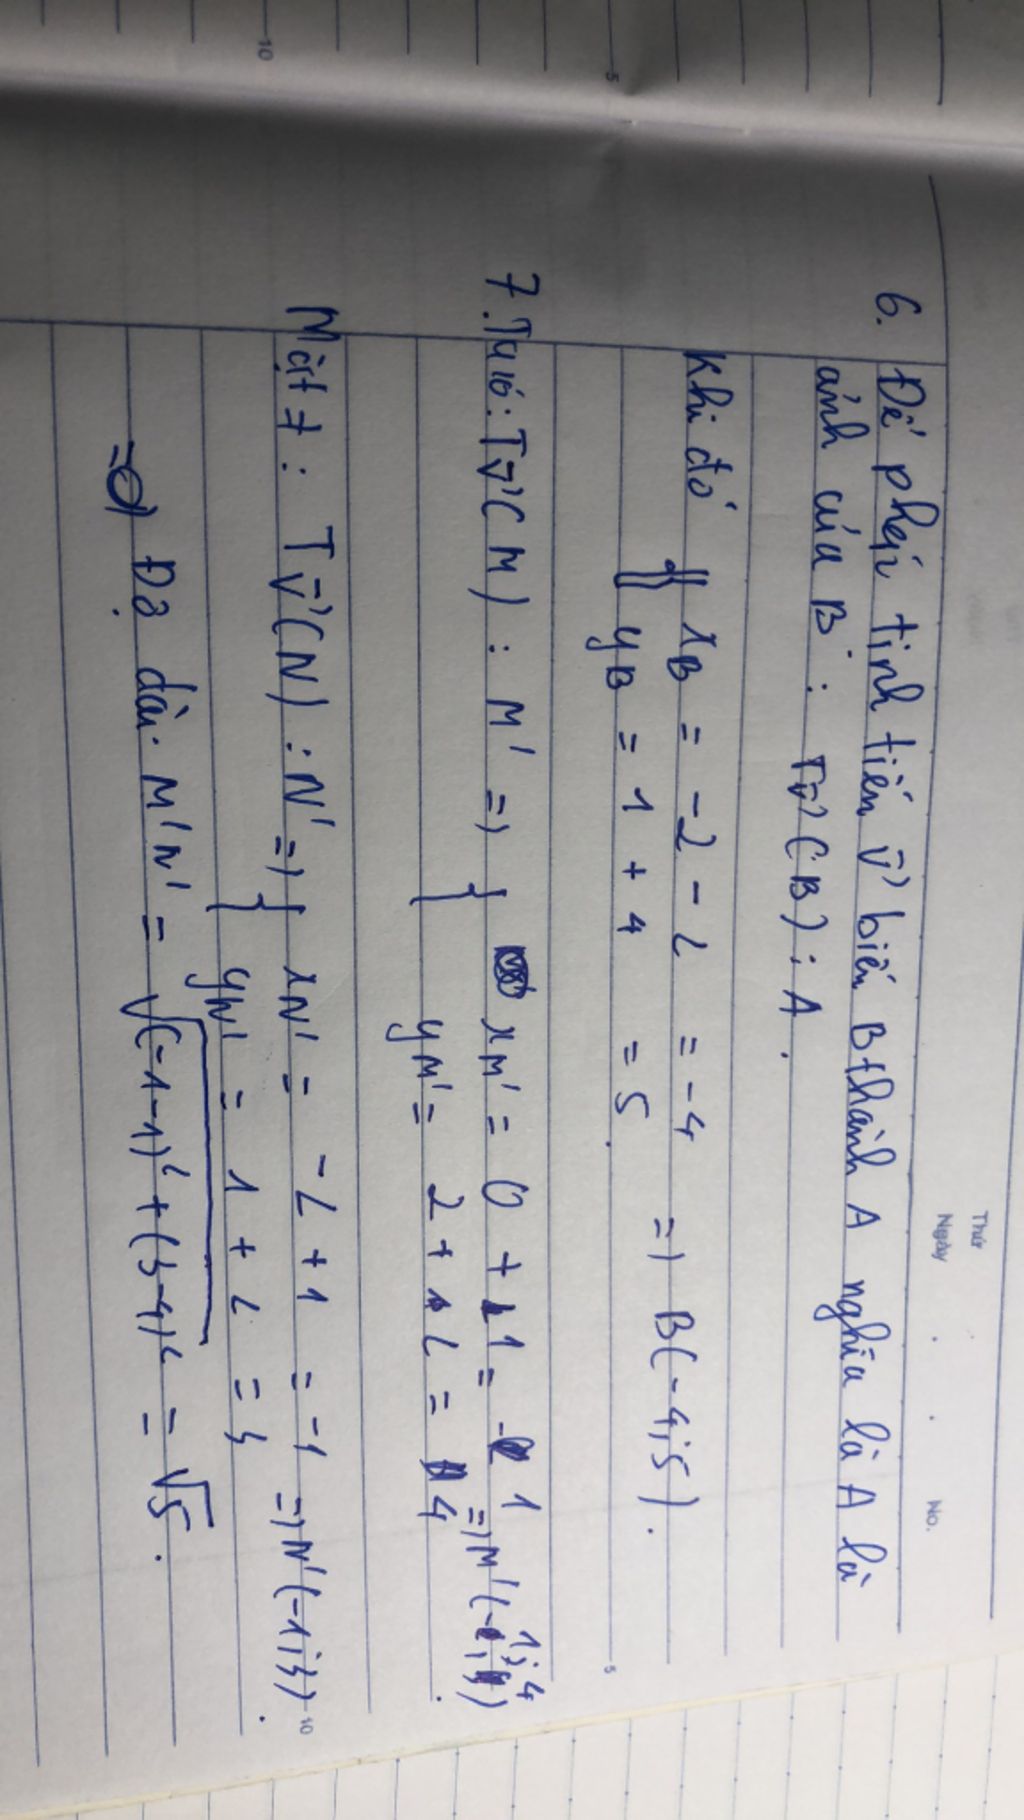 Thứ
Ngày . . No.
6. Để phép tịnh tiến v⃗ biến B thành A nghĩa là A là
ảnh của B : Tv⃗(B) : A .
Khi đó { xB = -2 - 2 = -4 => B(-4;5).
{ yB = 1 + 4 = 5 .
7. Ta có : Tv⃗(M) : M' => { xM' = 0 + 1 = 1 => M'(1;4)
{ yM' = 2 + 2 = 4 .
Mặt ≠ : Tv⃗(N) : N' => { xN' = -2 + 1 = -1 => N'(-1;3)
{ yN' = 1 + 2 = 3 .
=> Độ dài M'N' = √(-1-1)² + (3-4)² = √5 .
5
10
5
10